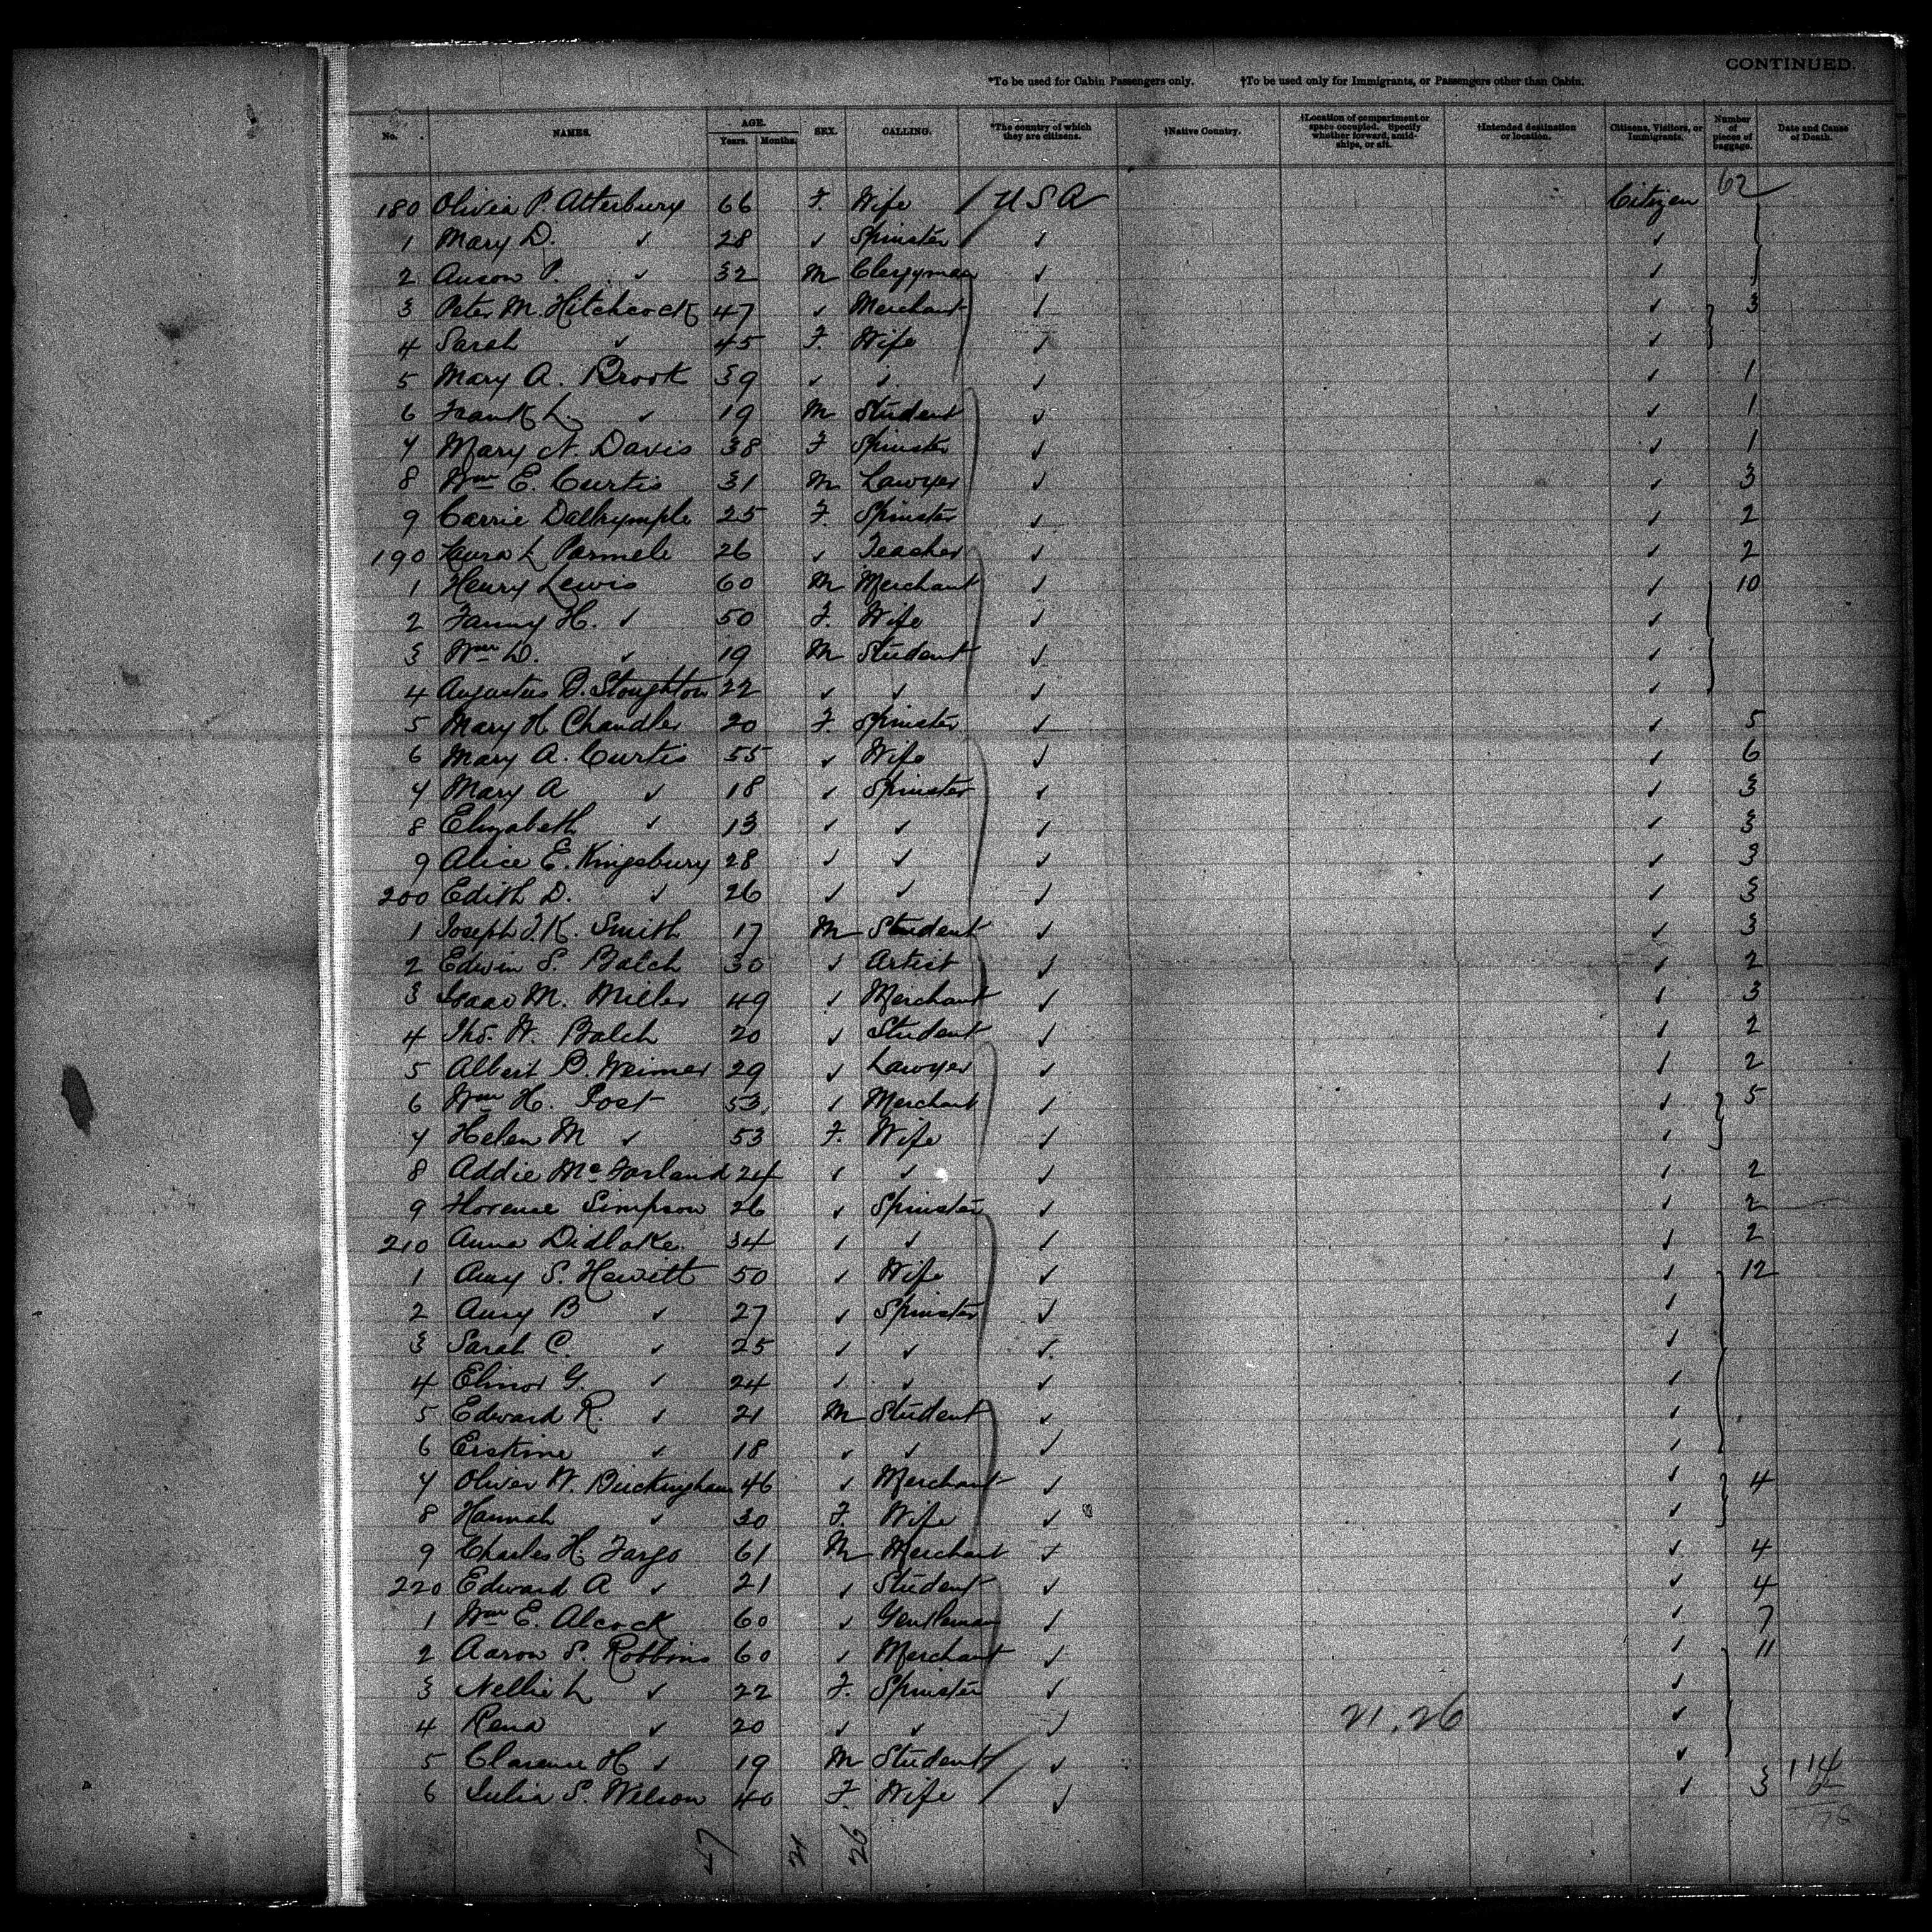 CONTINUED.
*To be used for Cabin Passengers only. †To be used only for Immigrants, or Passengers other than Cabin.
No. NAMES. AGE. Years. Months. SEX. CALLING. *The country of which they are citizens. †Native Country. †Location of compartment or space occupied. Specify whether forward, amidships, or aft. †Intended destination or location. Citizens, Visitors, or Immigrants. Number of pieces of baggage. Date and Cause of Death.
180 Olivia P Atterbury 66 F. Wife U S A Citizen 62
1 Mary D. ✓ 28 ✓ Spinster ✓ ✓
2 Anson P. ✓ 32 M Clergyman ✓ ✓
3 Peter M. Hitchcock 47 ✓ Merchant ✓ ✓ 3
4 Sarah ✓ 45 F. Wife ✓ ✓
5 Mary A. Brook 39 ✓ ✓ ✓ ✓ 1
6 Frank L. ✓ 19 M Student ✓ ✓ 1
7 Mary N. Davis 38 F Spinster ✓ ✓ 1
8 Wm E. Curtis 31 M Lawyer ✓ ✓ 3
9 Carrie Dalrymple 25 F. Spinster ✓ ✓ 2
190 Laura L Parmele 26 ✓ Teacher ✓ ✓ 2
1 Henry Lewis 60 M Merchant ✓ ✓ 10
2 Fanny H. ✓ 50 F. Wife ✓ ✓
3 Wm D. ✓ 19 M Student ✓ ✓
4 Augustus B. Stoughton 22 ✓ ✓ ✓ ✓
5 Mary H Chandler 20 F. Spinster ✓ ✓ 5
6 Mary A. Curtis 55 ✓ Wife ✓ ✓ 6
7 Mary A ✓ 18 ✓ Spinster ✓ ✓ 3
8 Elizabeth ✓ 13 ✓ ✓ ✓ ✓ 3
9 Alice E. Kingsbury 28 ✓ ✓ ✓ ✓ 3
200 Edith D. ✓ 26 ✓ ✓ ✓ ✓ 3
1 Joseph J. K. Smith 17 M Student ✓ ✓ 3
2 Edwin S. Balch 30 ✓ Artist ✓ ✓ 2
3 Isaac M. Miller 49 ✓ Merchant ✓ ✓ 3
4 Tho. W. Balch 20 ✓ Student ✓ ✓ 2
5 Albert B. Weimer 29 ✓ Lawyer ✓ ✓ 2
6 Wm H. Post 53 ✓ Merchant ✓ ✓ 5
7 Helen M ✓ 53 F. Wife ✓ ✓
8 Addie McFarland 24 ✓ ✓ ✓ ✓ 2
9 Florence Simpson 26 ✓ Spinster ✓ ✓ 2
210 Anna Didlake. 34 ✓ ✓ ✓ ✓ 2
1 Amy S. Hewitt 50 ✓ Wife ✓ ✓ 12
2 Amy B ✓ 27 ✓ Spinster ✓ ✓
3 Sarah C. ✓ 25 ✓ ✓ ✓ ✓
4 Elinor G. ✓ 24 ✓ ✓ ✓ ✓
5 Edward R. ✓ 21 M Student ✓ ✓
6 Erskine ✓ 18 ✓ ✓ ✓ ✓
7 Oliver W. Buckingham 46 ✓ Merchant ✓ ✓ 4
8 Hannah ✓ 30 F. Wife ✓ ✓
9 Charles H Fargo 61 M Merchant ✓ ✓ 4
220 Edward A ✓ 21 ✓ Student ✓ ✓ 4
1 Wm E. Alcock 60 ✓ Gentleman ✓ ✓ 7
2 Aaron S. Robbins 60 ✓ Merchant ✓ ✓ 11
3 Nellie L ✓ 22 F. Spinster ✓ ✓
4 Rena ✓ 20 ✓ ✓ ✓ 21.26 ✓
5 Clarence H ✓ 19 M Student ✓ ✓
6 Julia S. Wilson 40 F. Wife ✓ ✓ 3 114
47 21 26